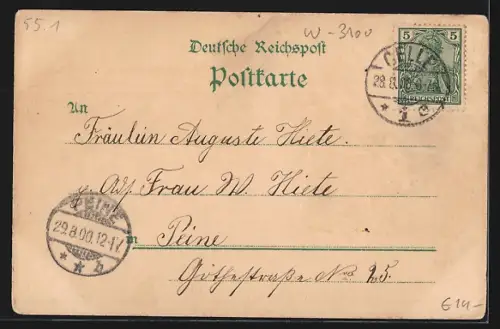 55.1
W-3100
Deutsche Reichspost
Postkarte
5
REICHSPOST
CELLE
28.8.00.
* 1 c
An
Fräulein Auguste Hiete.
Adr. Frau W. Hiete
PEINE
29.8.00.12-1V.
* * b
in Peine
Göthestraße No 25.
€14-